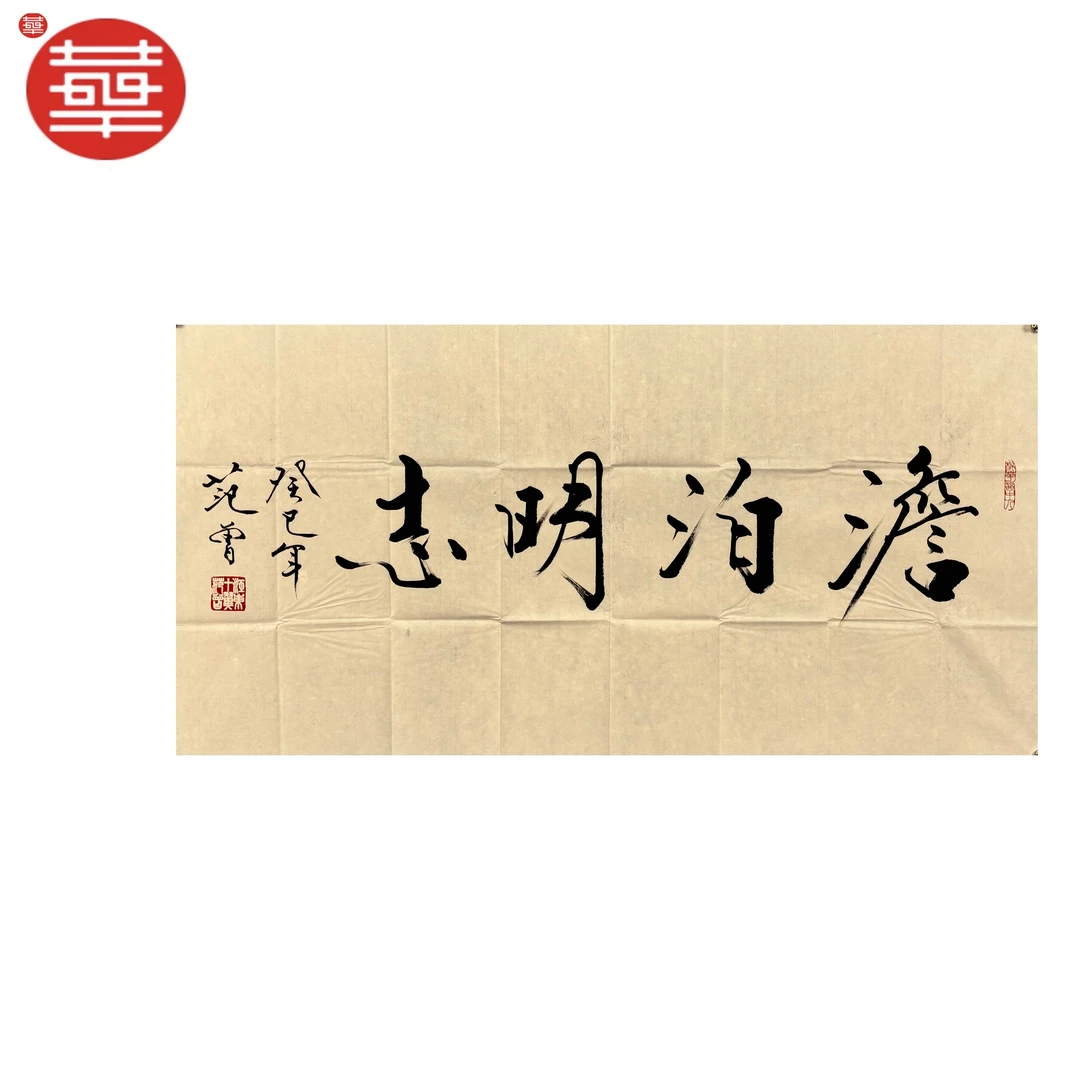 華
華
澹泊明志
癸巳年
范曾